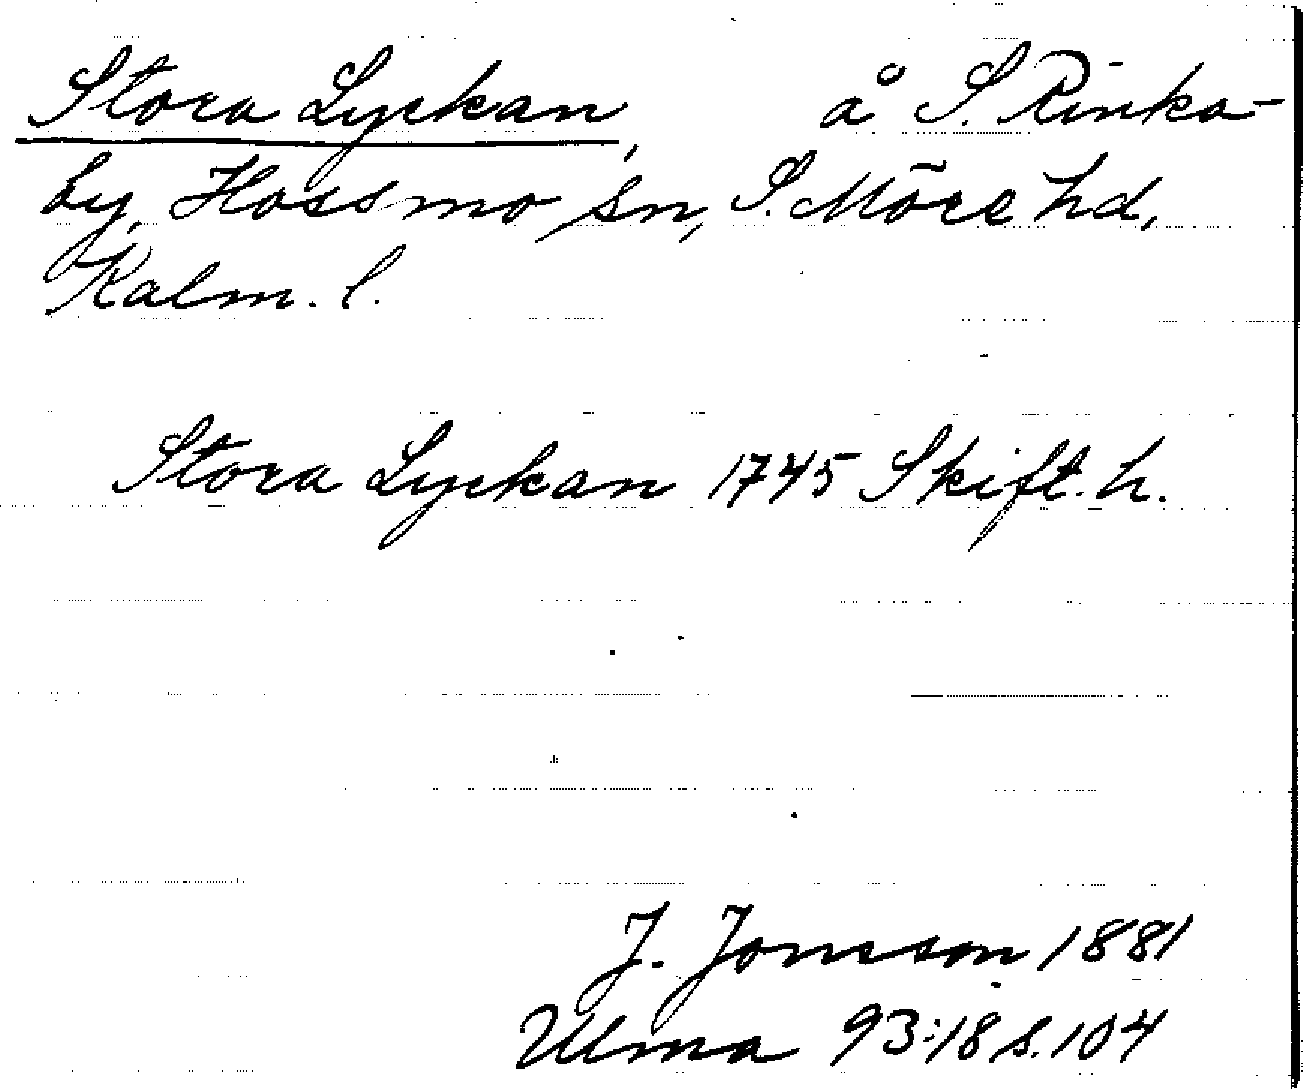 Stora Lyckan, å S. Rinka-
by, Hossmo sn, S. Möre hd,
Kalm. l.
Stora Lyckan 1745 Skift. h.
J. Jonsson 1881
Ulma 93:18 s. 104